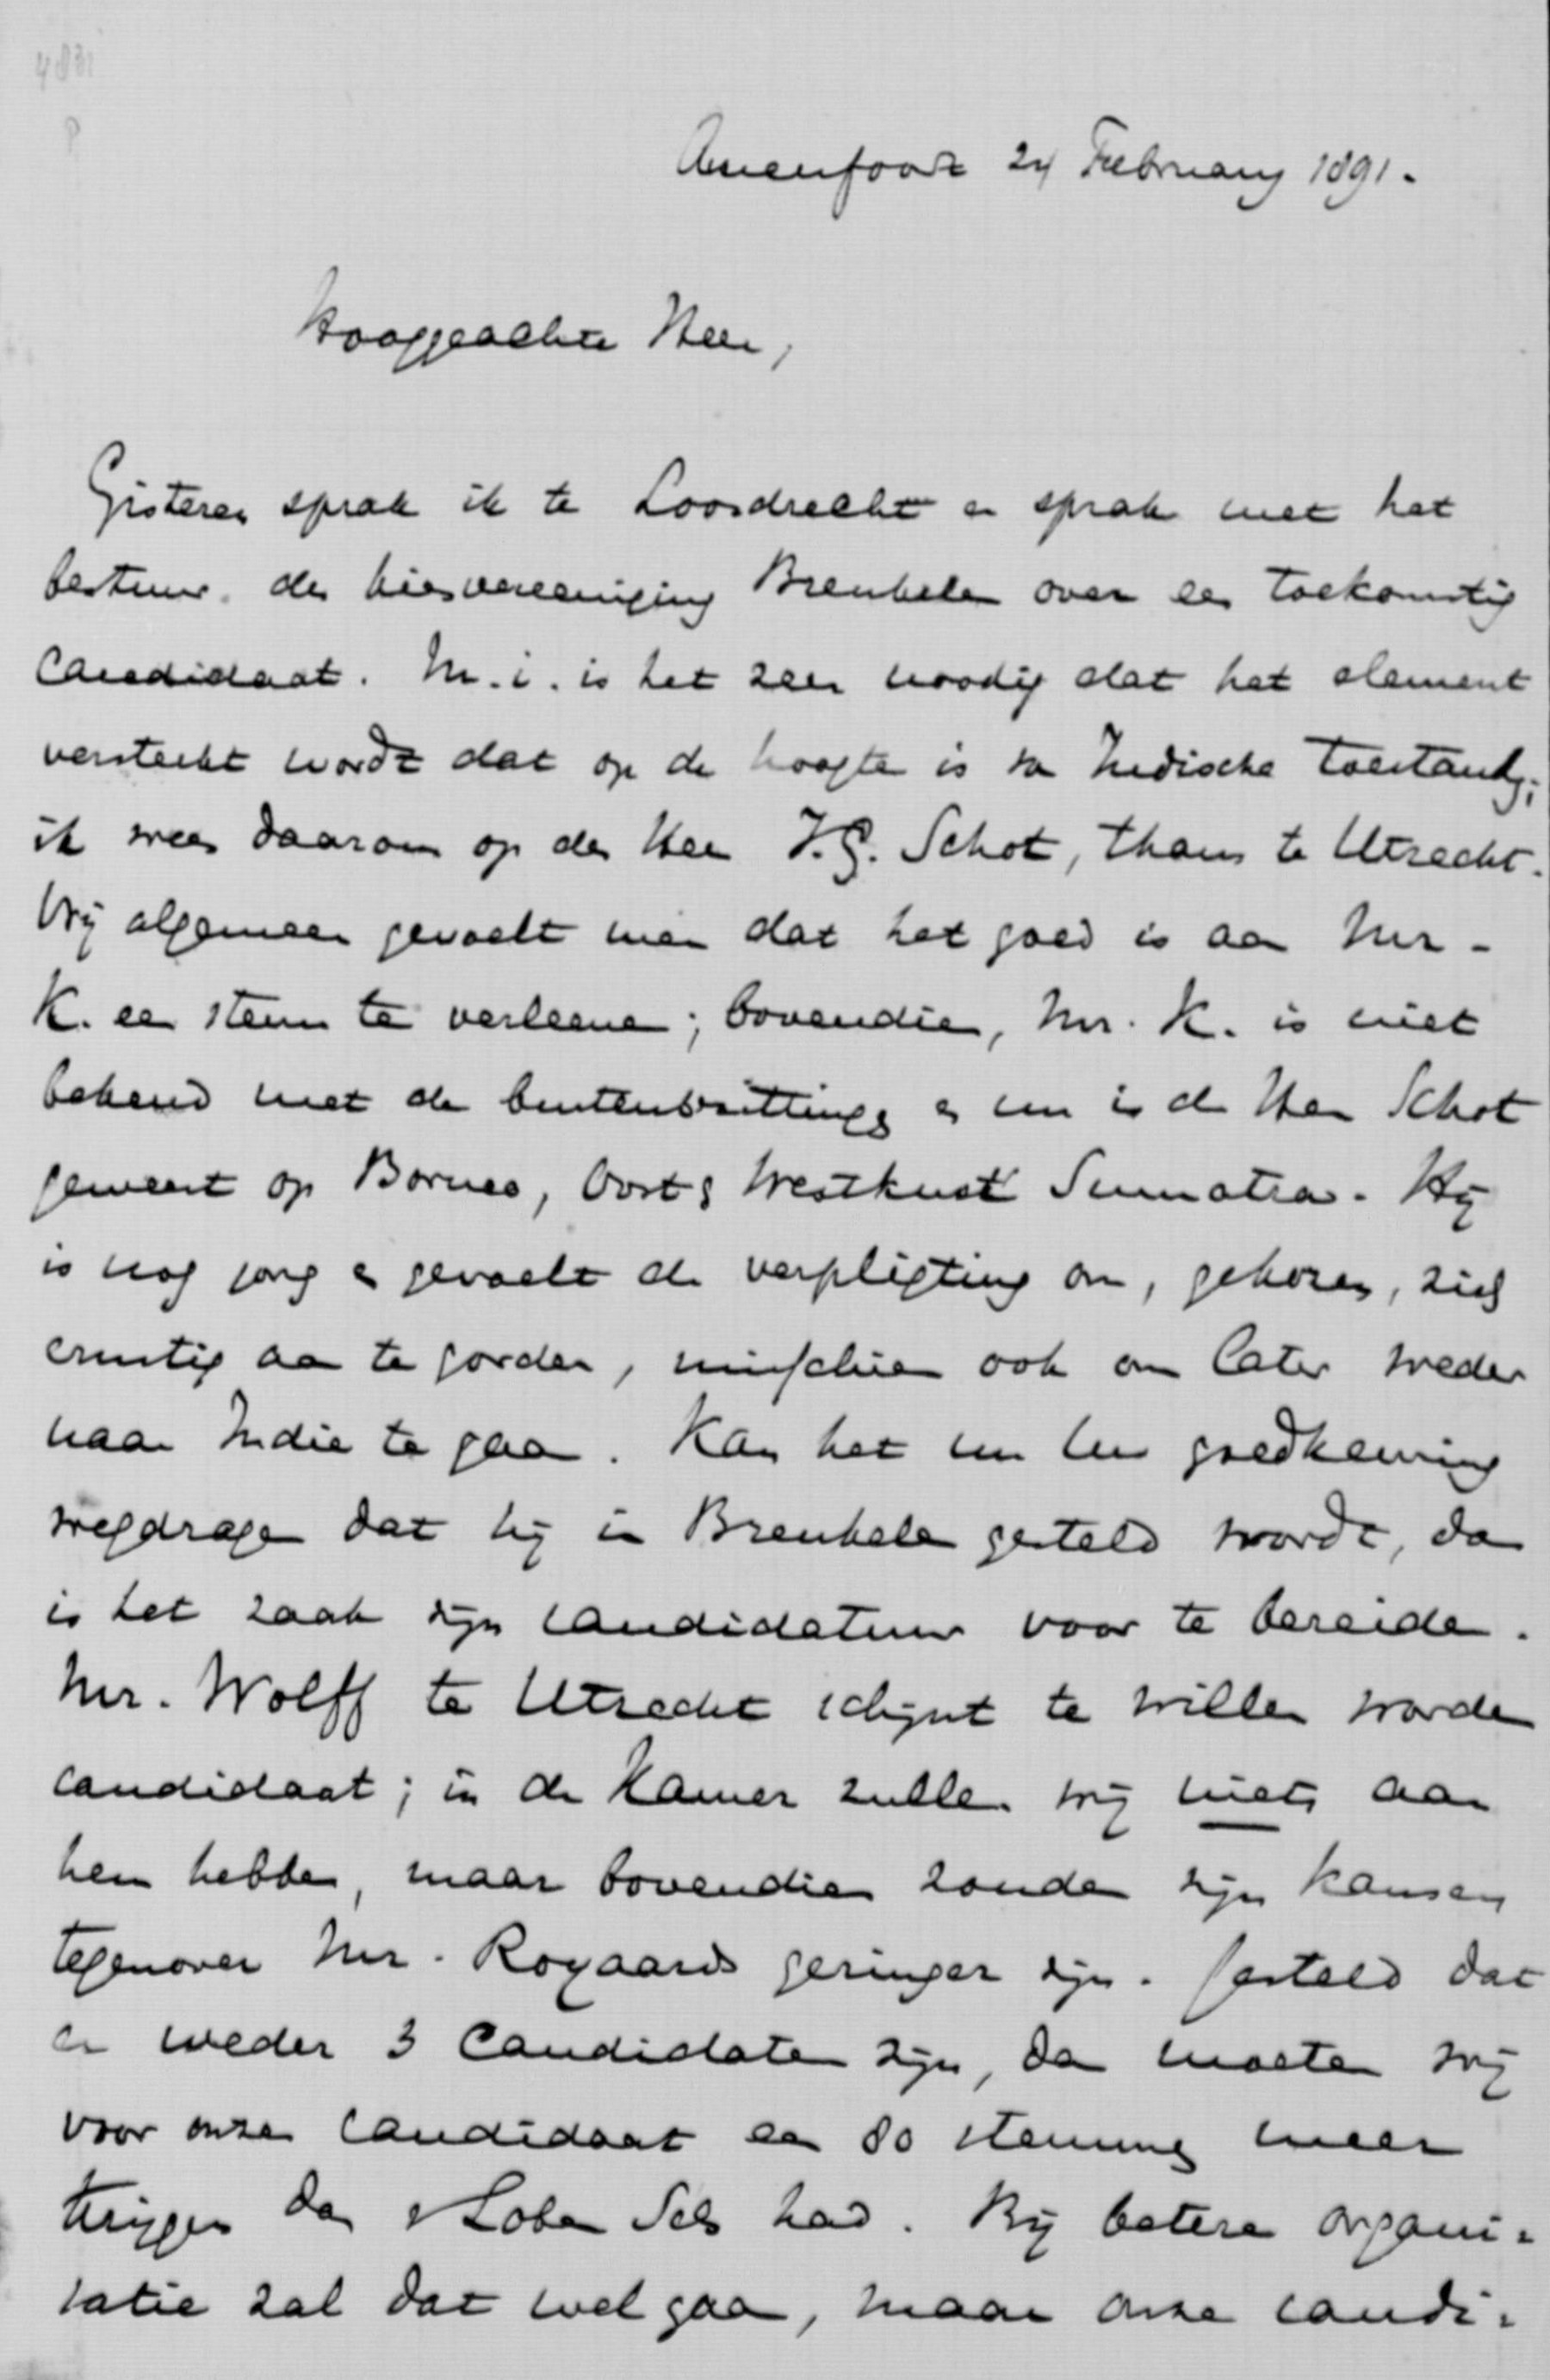 Amersfoort 24 February 1891.
Hooggeachte Heer,
Gisteren sprak ik te Loosdrecht en sprak met het
bestuur der kiesvereeniging Breukelen over een toekomstig
candidaat. M.i. is het zeer noodig dat het element
versterkt wordt dat op de hoogte is van Indische toestanden;
ik wees daarom op den Heer J.G. Schot, thans te Utrecht.
Vrij algemeen gevoelt men dat het goed is aan Mr.
K. een steun te verleenen; bovendien, Mr. K. is niet
bekend met de buitenbezittingen en nu is de Heer Schot
geweest op Borneo, Oost- en Westkust Sumatra. Hij
is nog jong en gevoelt de verpligting om, gekozen, zich
ernstig aan te gorden, misschien ook om later weder
naar Indie te gaan. Kan het nu Uw goedkeuring
wegdragen dat hij in Breukelen gesteld wordt, dan
is het zaak zijn candidatuur voor te bereiden.
Mr. Wolff te Utrecht schijnt te willen worden
candidaat; in de Kamer zullen wij niets aan
hem hebben, maar bovendien zouden zijn kansen
tegenover Mr. Royaards geringer zijn. Gesteld dat
er weder 3 Candidaten zijn, dan moeten wij
voor onzen candidaat een 80 stemmen meer
krijgen dan v Loben Sels had. Bij betere organi-
satie zal dat wel gaan, maar onze candi-